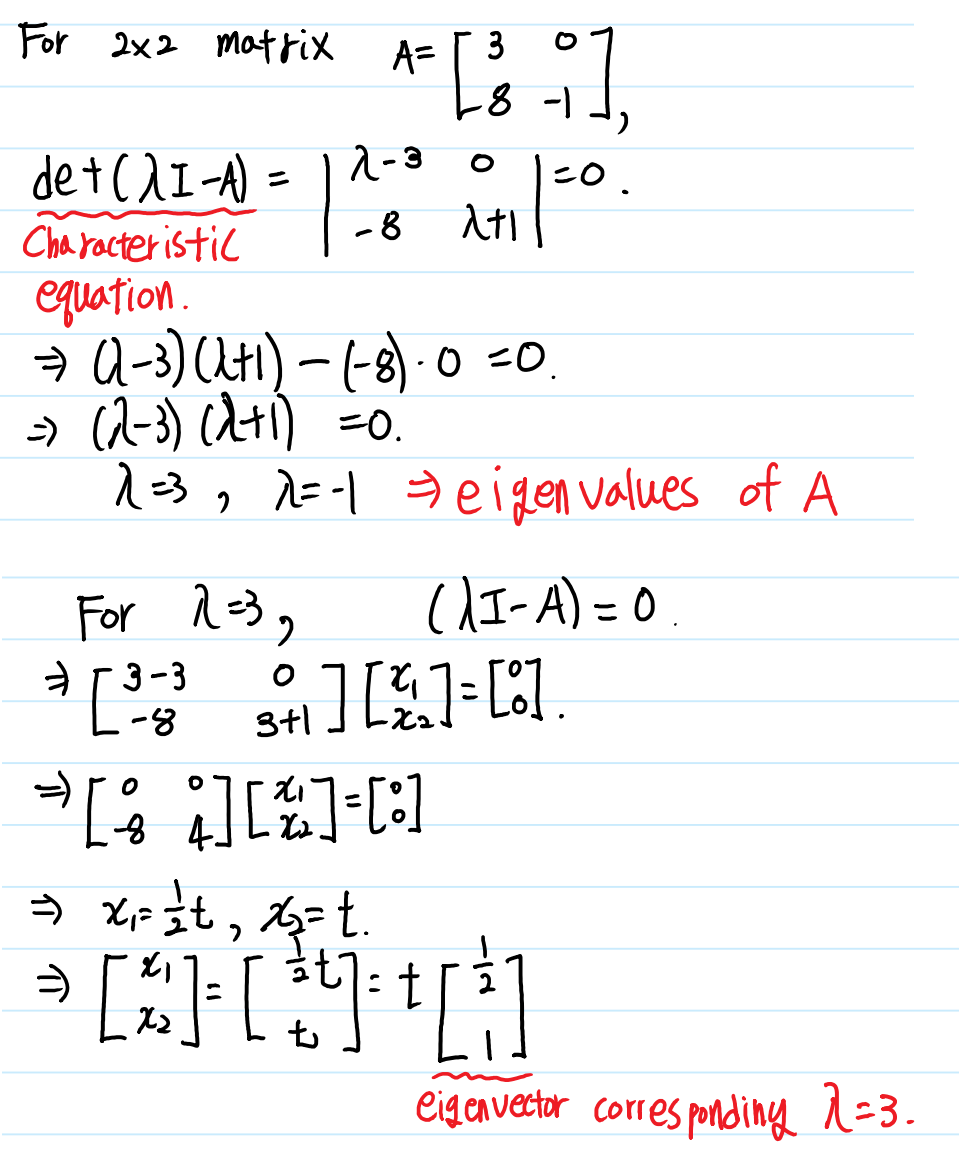 For 2x2 matrix A= [ 3 0
8 -1 ],
det(λI-A) = | λ-3 0
-8 λ+1 | =0.
Characteristic
equation.
⇒ (λ-3)(λ+1) - (-8)·0 =0.
⇒ (λ-3)(λ+1) =0.
λ=3, λ=-1 ⇒ eigenvalues of A
For λ=3, (λI-A)=0.
⇒ [ 3-3 0
-8 3+1 ] [ x₁
x₂ ] = [ 0
0 ].
⇒ [ 0 0
-8 4 ] [ x₁
x₂ ] = [ 0
0 ]
⇒ x₁=½t, x₂=t.
⇒ [ x₁
x₂ ] = [ ½t
t ] = t [ ½
1 ]
eigenvector corresponding λ=3.